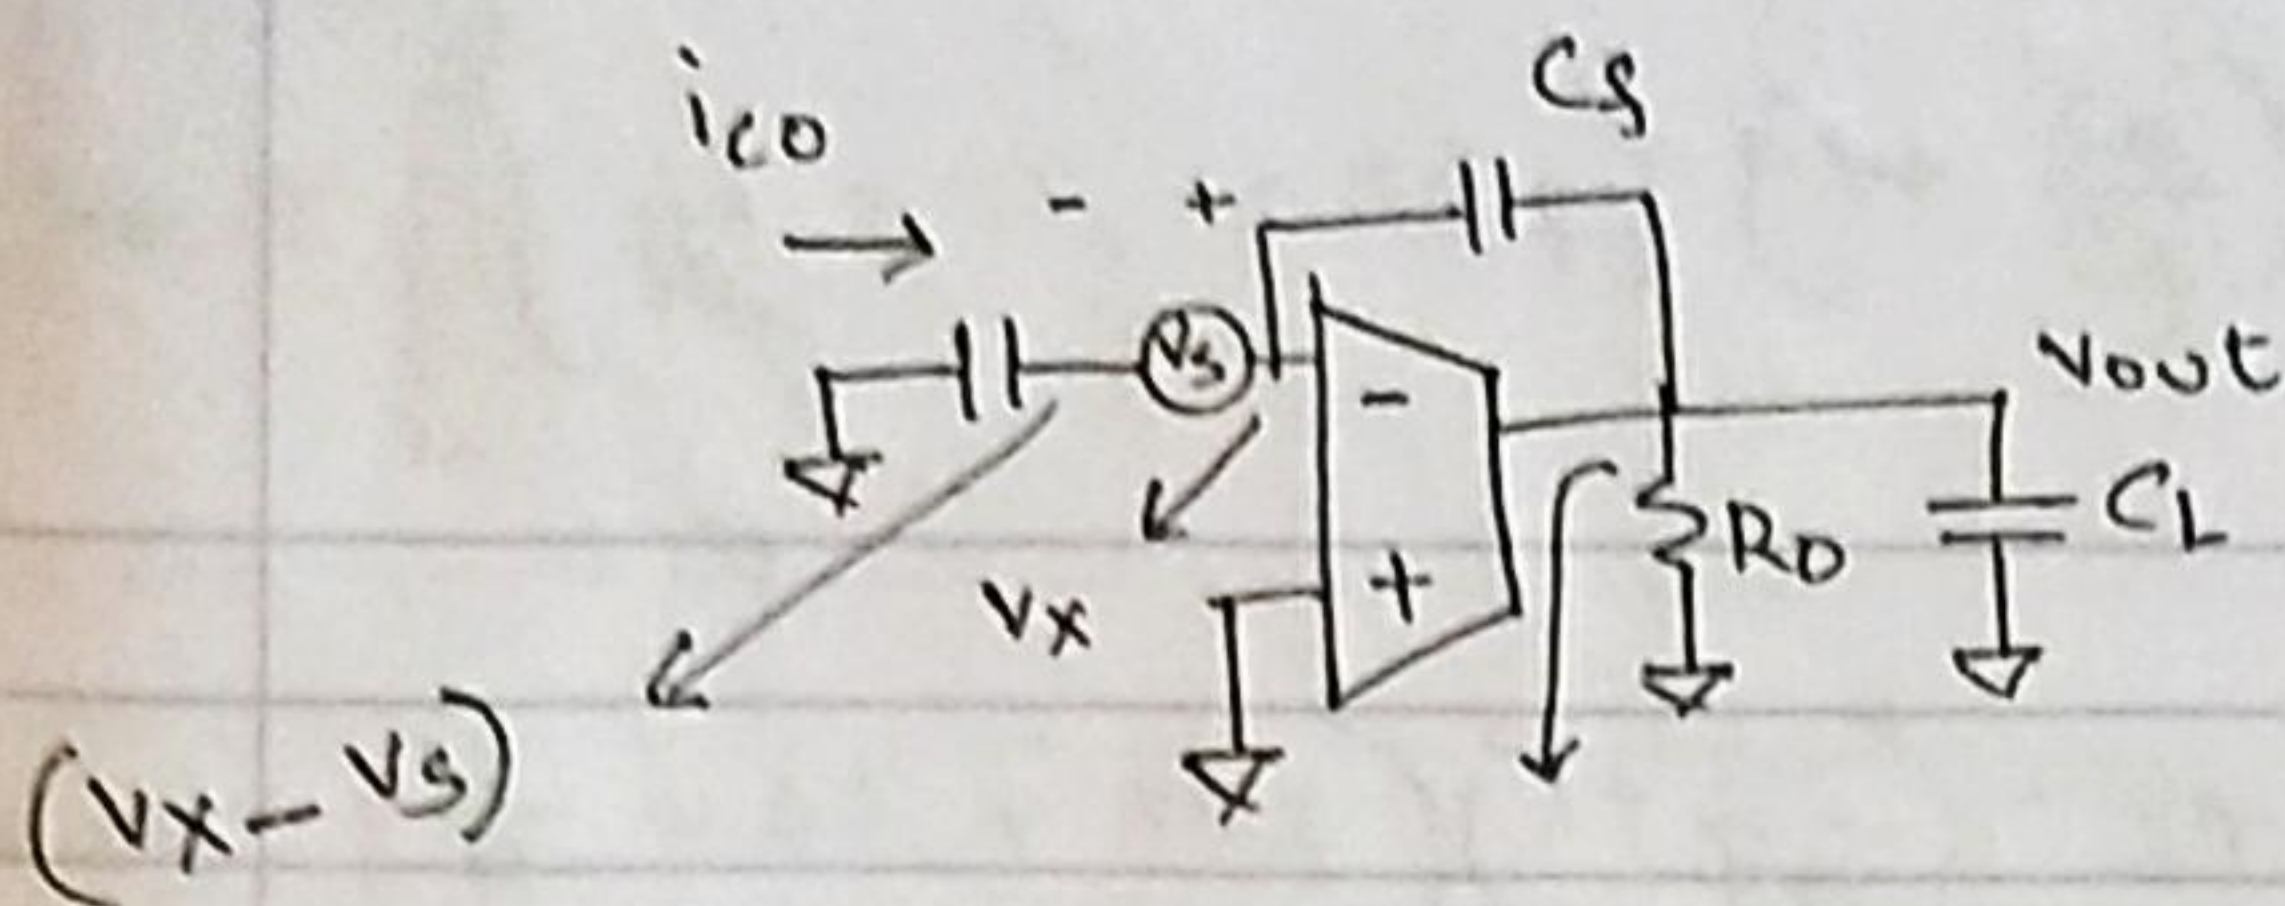 Cf
ico
- +
Vs
-
Vout
RD
CL
+
Vx
(Vx - Vs)